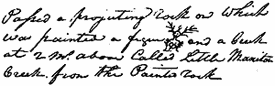 Passed a projecting rock on which
was painted a figure and a Creek
at 2 ms. above Called Little Manitou
Creek from the Painted rock